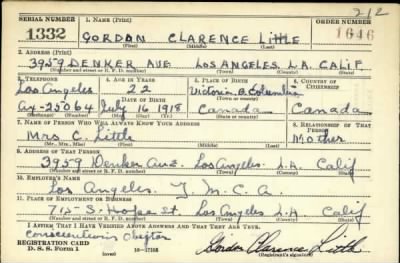 212
SERIAL NUMBER 1. NAME (Print) ORDER NUMBER
1332 GORDON CLARENCE LITTLE 1646
(First) (Middle) (Last)
2. ADDRESS (Print)
3959 DENKER AVE LOS ANGELES L.A. CALIF
(Number and street or R. F. D. number) (Town) (County) (State)
3. TELEPHONE 4. AGE IN YEARS 5. PLACE OF BIRTH 6. COUNTRY OF CITIZENSHIP
Los Angeles 22 Victoria B. Columbia
DATE OF BIRTH (Town or county)
Ax-25064 July 16 1918 Canada Canada
(Exchange) (Number) (Mo.) (Day) (Yr.) (State or country)
7. NAME OF PERSON WHO WILL ALWAYS KNOW YOUR ADDRESS 8. RELATIONSHIP OF THAT PERSON
Mrs C. Little Mother
(Mr., Mrs., Miss) (First) (Middle) (Last)
9. ADDRESS OF THAT PERSON
3959 Denker Ave. Los Angeles. L.A. Calif
(Number and street or R. F. D. number) (Town) (County) (State)
10. EMPLOYER'S NAME
Los Angeles. Y.M.C.A
11. PLACE OF EMPLOYMENT OR BUSINESS
715 S. Hope St. Los Angeles L.A Calif
(Number and street or R. F. D. number) (Town) (County) (State)
I AFFIRM THAT I HAVE VERIFIED ABOVE ANSWERS AND THAT THEY ARE TRUE.
Conscientious objector
REGISTRATION CARD
D. S. S. Form 1 (over) 16—17105 Gordon Clarence Little
(Registrant's signature)